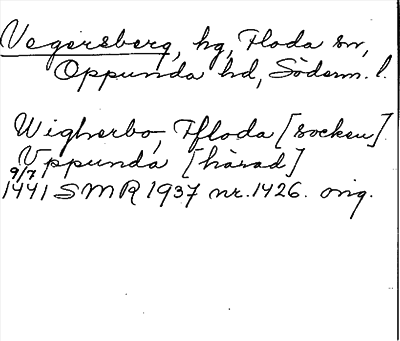 Vegersberg, hg, Floda sn,
Oppunda hd, Söderm. l.
Wigherbo, Ffloda [socken]
Vppunda [härad]
9/7
1441 SMR 1937 nr. 1426. orig.